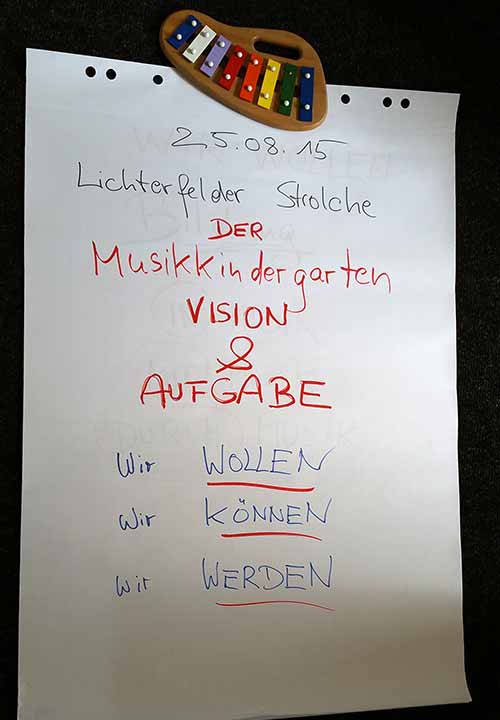 25.08.15
Lichterfelder Strolche
DER
Musikkindergarten
VISION
&
AUFGABE
Wir WOLLEN
Wir KÖNNEN
Wir WERDEN